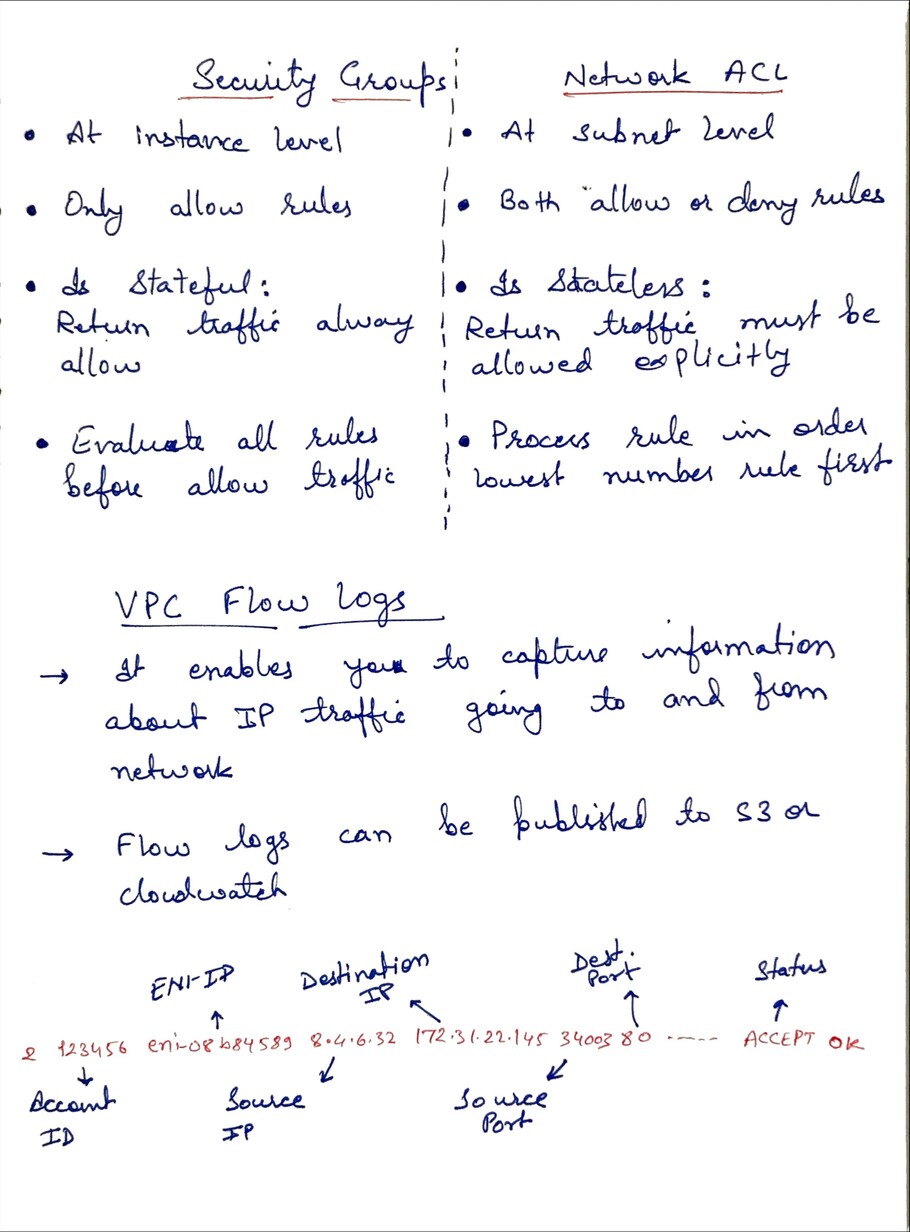 Security Groups
• At instance level
• Only allow rules
• Is Stateful:
Return traffic alway
allow
• Evaluate all rules
before allow traffic
Network ACL
• At subnet level
• Both allow or deny rules
• Is Stateless:
Return traffic must be
allowed explicitly
• Process rule in order
lowest number rule first
VPC Flow Logs
→ It enables you to capture information
about IP traffic going to and from
network
→ Flow logs can be published to S3 or
cloudwatch
ENI-ID
Destination
IP
Dest.
Port
Status
2 123456 eni-08b84589 8.4.6.32 172.31.22.145 34003 80 ----- ACCEPT OK
Account
ID
Source
IP
Source
Port